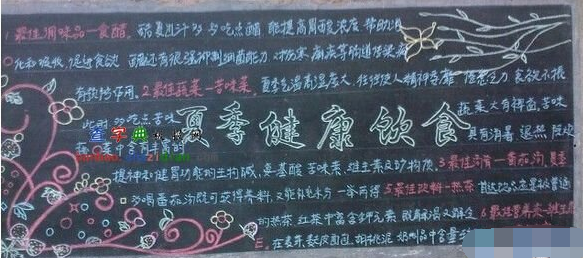 1最佳调味品—食醋。醋夏出汗多多吃点醋,能提高胃酸浓度,帮助消
化和吸收,促进食欲。醋还有很强抑制细菌能力,对伤寒、痢疾等肠道传染病
有预防作用。2.最佳蔬菜—苦味菜。夏季气温高湿度大,往往使人精神萎靡、倦怠乏力、食欲不振
此时,多吃点苦味
蔬菜大有裨益,苦味
夏季健康饮食
查字典
菜中含有丰富的
具有消暑、退热、除烦
提神和健胃功能的生物碱、氨基酸、苦味素、维生素及矿物质。3最佳汤肴—番茄汤,夏季
多喝番茄汤既可获得养料,又能补充水分,一举两得。5最佳饮料—热茶
的热茶。红茶中富含钾元素,既解渴又解乏。6最佳营养素—维生素
E。在麦芽、麸皮面包、胡桃泥、奶制品中含量